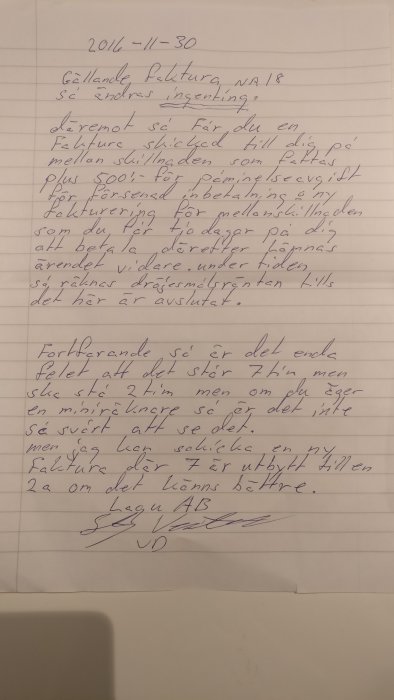 2016-11-30
Gällande faktura NR18
så ändras ingenting.
däremot så får du en
faktura skickad till dig på
mellanskillnaden som fattas
plus 500:- för påminelseavgift
för försenad inbetalning & ny
fakturering för mellanskillnaden
som du får tio dagar på dig
att betala därefter lämnas
ärendet vidare. under tiden
så räknas dröjesmålsräntan tills
det här är avslutat.
Fortfarande så är det enda
felet att det står 7tim men
ska stå 2tim men om du äger
en miniräknare så är det inte
så svårt att se det.
men jag kan schicka en ny
faktura där 7 är utbytt till en
2a om det känns bättre.
Lagu AB
VD